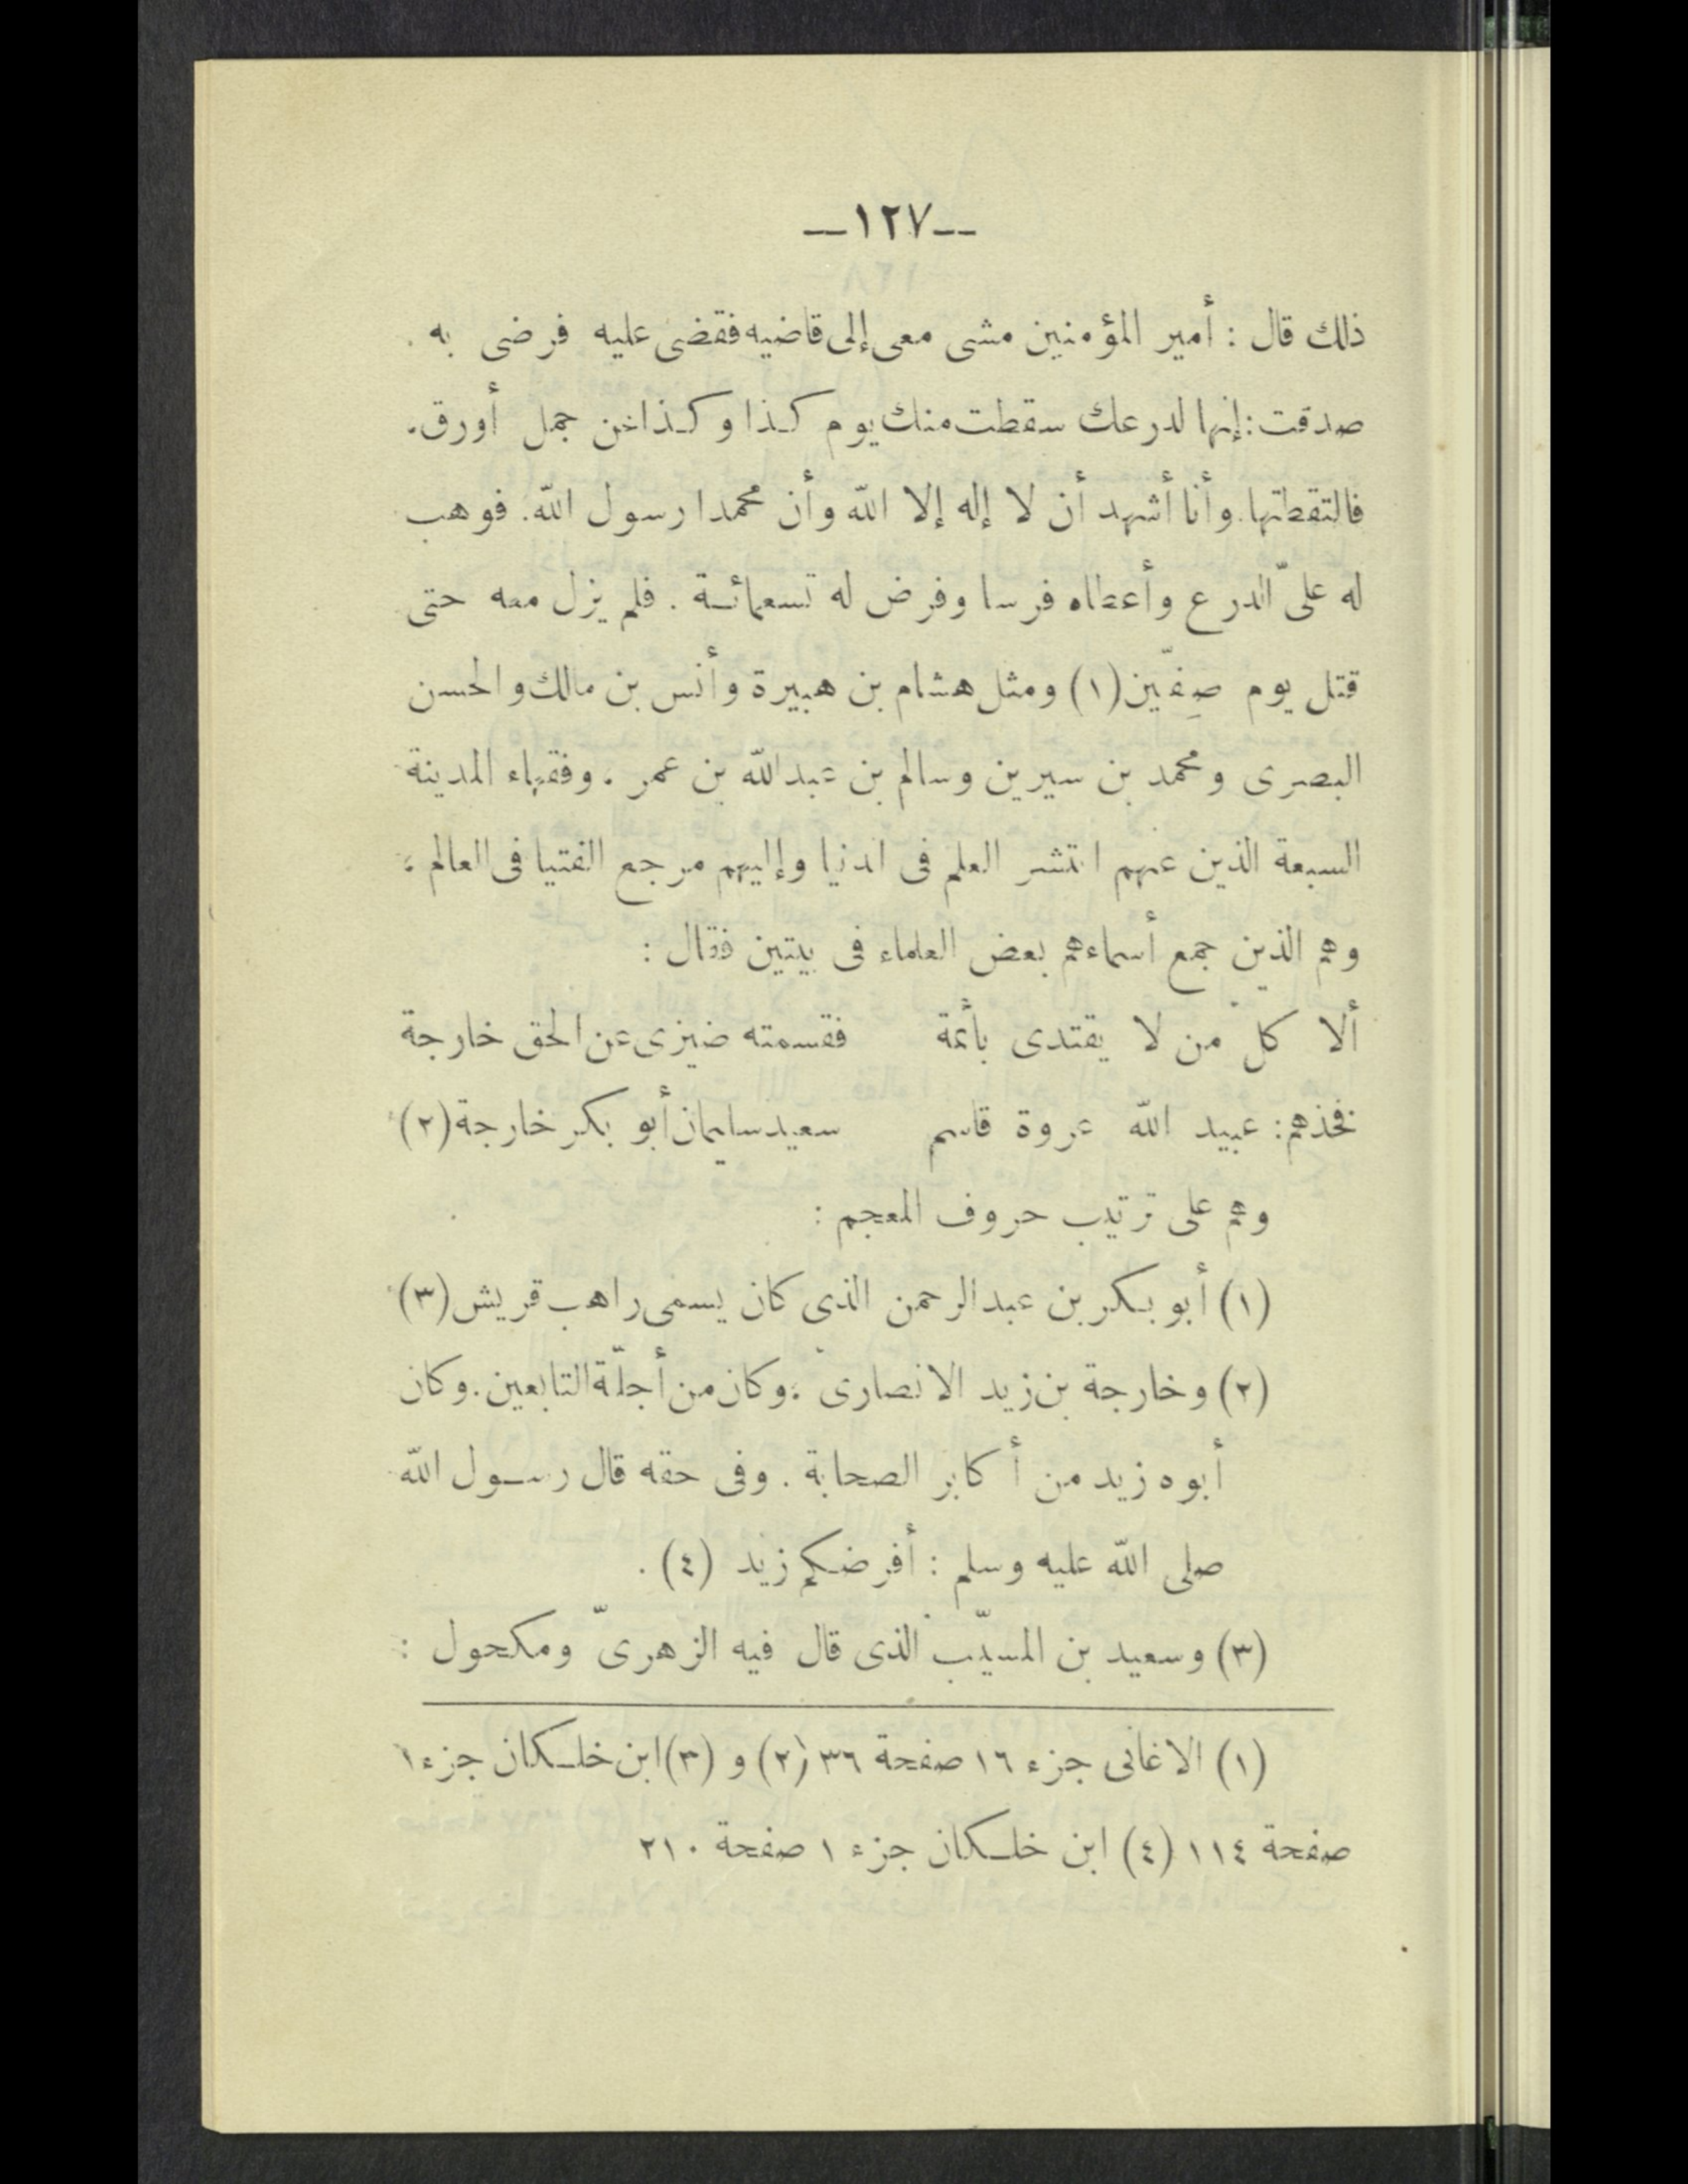 —١٢٧—
ذلك قال : أمير المؤمنين مشى معى إلى قاضيه فقضى عليه فرضى به .
صدقت : إنها لدرعك سقطت منك يوم كذا وكذا عن جمل أورق .
فالتقطتها . وأنا أشهد أن لا إله إلا الله وأن محمدا رسول الله . فوهب
له علىّ الدرع وأعطاه فرسا وفرض له تسعمائة . فلم يزل معه حتى
قتل يوم صِفّين (١) ومثل هشام بن هبيرة وأنس بن مالك والحسن
البصرى ومحمد بن سيرين وسالم بن عبدالله بن عمر . وفقهاء المدينة
السبعة الذين عنهم انتشر العلم فى الدنيا وإليهم مرجع الفتيا فى العالم .
وهم الذين جمع أسماءهم بعض العلماء فى بيتين فقال :
ألا كلّ من لا يقتدى بأئمة فقسمته ضيزى عن الحق خارجة
فخذهم : عبيد الله عروة قاسم سعيد سليمان أبو بكر خارجة (٢)
وهم على ترتيب حروف المعجم :
(١) أبو بكر بن عبد الرحمن الذى كان يسمى راهب قريش (٣)
(٢) وخارجة بن زيد الانصارى ، وكان من أجلّة التابعين . وكان
أبوه زيد من أكابر الصحابة . وفى حقه قال رسول الله
صلى الله عليه وسلم : أفرضكم زيد (٤) .
(٣) وسعيد بن المسيّب الذى قال فيه الزهرىّ ومكحول :
(١) الاغانى جزء ١٦ صفحة ٣٦ (٢) و (٣) ابن خلكان جزء ١
صفحة ١١٤ (٤) ابن خلكان جزء ١ صفحة ٢١٠